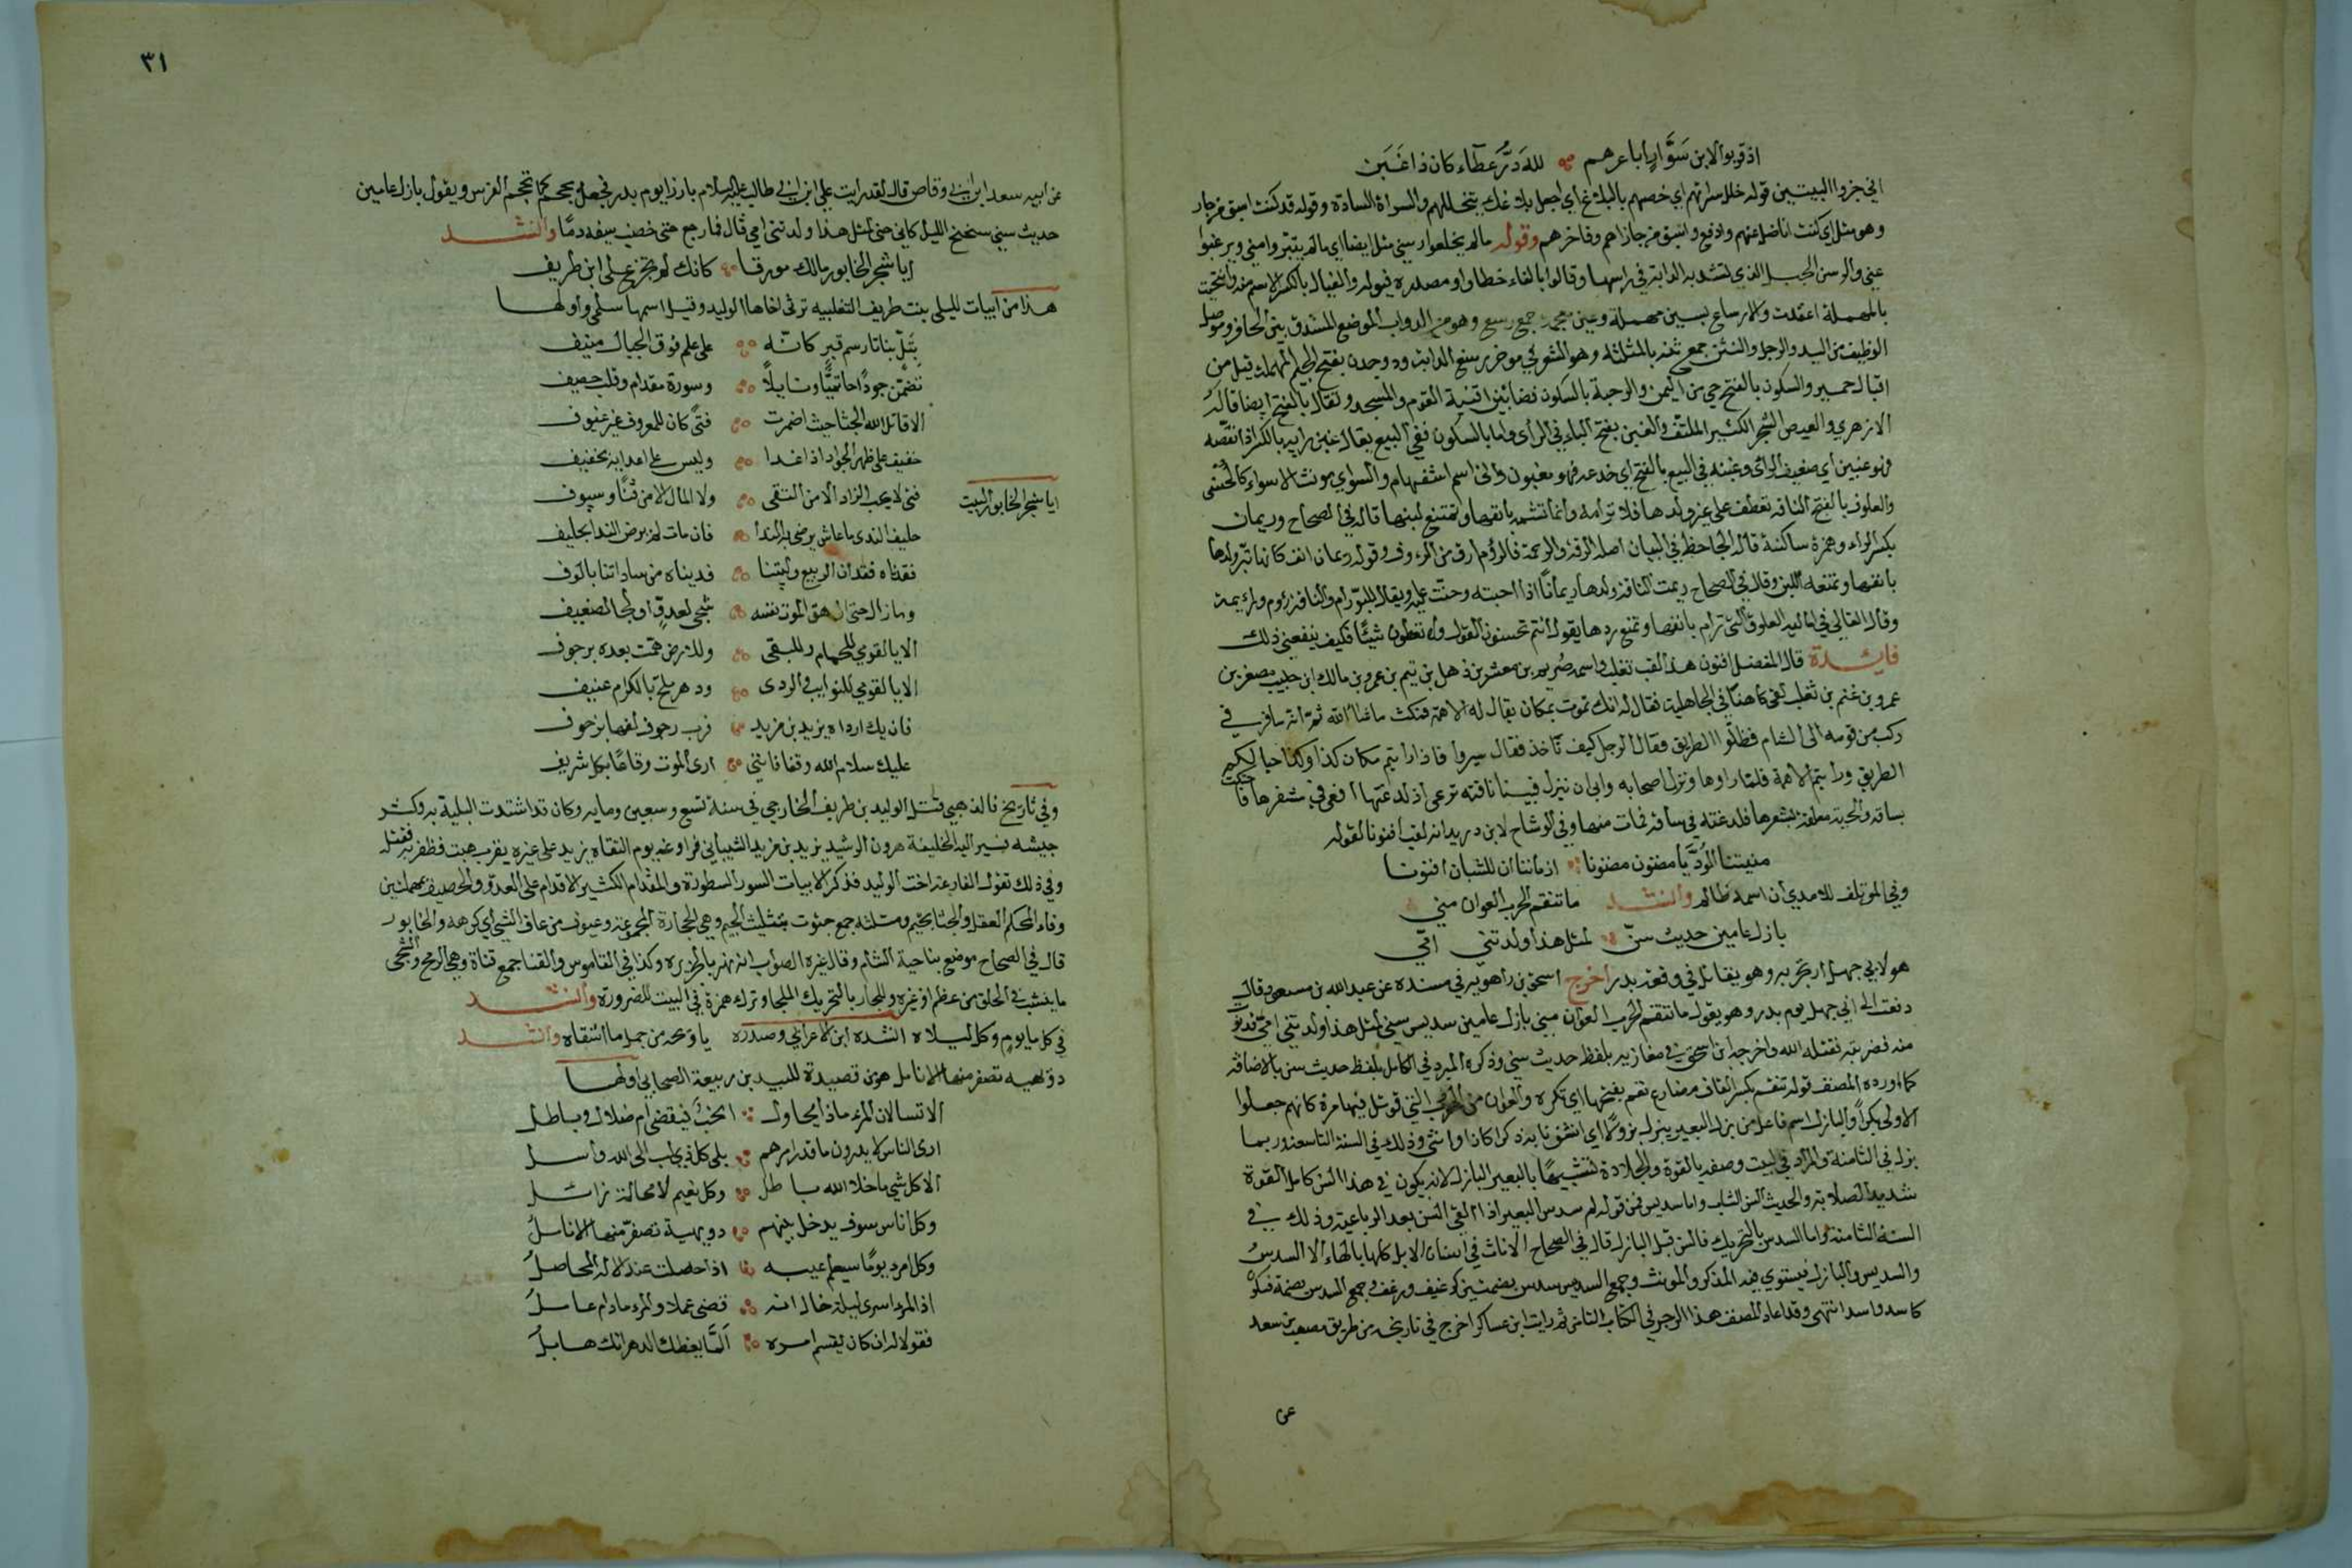 اذ قربوا لابن سَوَّارٍ اباعرهم لله دَرُّ عطآء كان ذا غَبَن
اني جزوا البيتين قوله خلل سراتهم اي خصهم بالبلاغ اي اجعل بلاغك يتخللهم والسراة السادة وقوله قد كنت اسبق من جار
وهو مثل اي كنت اناضل عنهم وادفع واسبق من جازاهم وفاخرهم وقوله مالم يخلعوا رسني مثل ايضا اي مالم يتبروا مني ويرغبوا
عني والرسن الحبل الذي تشد به الدابة في راسها وقالوا بالفاء خطا
بالمهملة اعتمدت والارساغ بسين مهملة وغين معجمة جمع رسغ وهو من الدواب الموضع المستدق بين الحافر وموصل
الوظيف من اليد والرجل والثنن جمع ثنة بالمثلثة وهو الشعر في موخر رسغ الدابة وذو جدن بفتح الجيم المهملة قيل من
اقيال حمير والسكون بالفتح حي من اليمن والرحبة بالسكون فضا بين افنية القوم والمسجد ويقال بالفتح ايضا قاله
الازهري والعيص الشجر الكثير الملتف والغبن بفتح الباء في الراى واما بالسكون ففي البيع يقال غبن رايه بالكسر اذا نقصه
فهو غبين اي ضعيف الراى وغبنه في البيع بالفتح اي خدعه فهو مغبون وانى اسم استفهام والسوآي مونث الاسواء كالحسنى
والعلوق بالفتح الناقة تعطف على غير ولدها فلا ترأمه وانما تشمه بانفها وتمتنع لبنها قاله في الصحاح ورئمان
بكسر الراء وهمزة ساكنة قال الجاحظ في البيان اصله الرقة والرحمة فالرؤم ارق من الرءوف وقوله رئمان انف كانها تبر ولدها
بانفها وتمنعه اللبن وقال في الصحاح رئمت الناقة ولدها رئمانًا اذا احبته وحنت عليه ويقال للبو رأم والناقة رؤم ورائمة
وقال القالي في اماليه العلوق التي ترام بانفها وتمنع درها يقول انتم تحسنون القول ولا تعطون شيئا فكيف ينفعني ذلك
فايــدة قال المفضل افنون هذا لقب تغلب واسمه صُريم بن معشر بن ذهل بن تيم بن عمرو بن مالك ابن حبيب مصغر بن
عمرو بن غنم بن تغلب لقي كاهنًا في الجاهلية فقال له انك تموت بمكان يقال له الاهة فمكث ما شاالله ثم انه سافر في
ركب من قومه الى الشام فظلوا الطريق فقال الرجل كيف ناخذ فقال سيروا فاذا رايتم مكان كذا وكذا حيا لكم
الطريق ورايتم الاهة فلما راوها ونزل اصحابه وابى ان ينزل فبينا ناقته ترعى اذ لدغتها افعى في مشفرها فاحتكت
بساقه والحية متعلقة بمشفرها فلدغته في ساقه فمات منها وفي الوشاح لابن دريد انه لقب افنونا لقوله
منيتنا الوُدَّ يا مضنون مضنونا ازماننا ان للشبان افنونا
وفي الموتلف للامدي ان اسمه ظالم وانشــد ما تنقم الحرب العوان مني
بازل عامين حديث سنّ لمثل هذا ولدتني امّي
هو لابي جهل ارتجز به وهو يقاتل في وقعة بدر اخرج اسحق بن راهويه في مسنده عن عبد الله بن مسعود قال
دفعت الى ابي جهل يوم بدر وهو يقول ما تنقم الحرب العوان مني بازل عامين سديس سني لمثل هذا ولدتني امي فدنوت
منه فضربته فقتله الله واخرجه ابن اسحق في مغازيه بلفظ حديث سني وذكره المبرد في الكامل بلفظ حديث سن بالاضافة
كما اورده المصنف قوله تنقم بكسر القاف مضارع نقم بفتحها اي تكره والعوان من الحرب التي قوتل فيها مرة كانهم جعلوا
الاولى بكراً والبازل اسم فاعل من بزل البعير يبزل بزولا اي انشق نابه ذكرا كان او انثى وذلك في السنة التاسعة وربما
بزل في الثامنة والمراد في البيت وصفه بالقوة والجلادة تشبيهًا بالبعير البازل لانه يكون في هذا السن كامل القوة
شديد الصلابة والحديث السن الشاب واما سديس فمن قولهم سدس البعير اذا القى السن بعد الرباعية وذلك في
السنة الثامنة واما السدس بالتحريك فالسن قبل البازل قال في الصحاح الاناث في اسنان الابل كلها بالهاء الا السدس
والسديس والبازل فيستوي فيه المذكر والمونث وجمع السديس سدس بضمتين كرغيف ورغف وجمع السدس بضمة فسكون
كاسد واسد انتهى وقد اعاد المصنف هذا الرجز في الكتاب الثامن ثم رايت ابن عساكر اخرج في تاريخه من طريق مصعب بن سعد
عن
٣١
عن ابيه سعد ابن ابي وقاص قال لقد رايت علي ابن ابي طالب عليه السلام بارزا يوم بدر فجعل يحمحم كما تحمحم الفرس ويقول بازل عامين
حديث سني سنحنح الليل كاني جني لمثل هذا ولدتني امي قال فما رجع حتى خضب سيفه دمًا وانشــد
ايا شجر الخابور مالك مورقا كانك لم تجزع على ابن طريف
هذا من ابيات لليلى بنت طريف التغلبيه ترثى اخاها الوليد وقيل اسمها سلمى واولها
بِتَلِّ بناثا رسم قبر كانّه على علم فوق الجبال منيف
تضمّن جودًا حاتميًّا ونايلًا وسورة مقدام وقلب حصيف
الا قاتل الله الجثا حيث اضمرت فتًى كان للمعروف غير عيوف
خفيف على ظهر الجواد اذا غدا وليس على اعدايه بخفيف
ايا شجر الخابور البيت
فتى لا يحب الزاد الا من التقى ولا المال الا من قنًا وسيوف
حليف الندى ما عاش يرضى به الندا فان مات لم يرض الندا بحليف
فقدناه فقدان الربيع وليتنا فديناه من ساداتنا بالوف
وما زال حتى ازهق الموت نفسه شجى لعدوٍّ او لجا لضعيف
الا يا لقومي للحمام وللبقى وللارض همت بعده برجوف
الا يا لقومي للنوايب والردى ودهر ملح بالكرام عنيف
فان يك ارداه يزيد بن مزيد فرب رجوف لفها بزحوف
عليك سلام الله وقفا فانني ارى الموت وقاعًا بكل شريف
وفي تاريخ الذهبي قتل الوليد بن طريف الخارجي في سنة تسع وسبعين وماية وكان قد اشتدت البلية به وكثر
جيشه فسير اليه الخليفة هرون الرشيد يزيد بن مزيد الشيباني فراوغه يوم التقاه يزيد على غرة بقرب هيت فظفر به فقتله
وفي ذلك تقول الفارعة اخت الوليد فذكر الابيات السورة السطوة والمقدام الكثير الاقدام على العدو والحصيف بمهملتين
وفاء المحكم العقل والجثا بجيم ومثلثة جمع جثوت بتثليث الجيم وهي الحجارة المجموعة وعيوف من عاف الشي اي كرهه والخابور
قال في الصحاح موضع بناحية الشام وقال غيره الصواب انه نهر بالجزيره وكذا في القاموس والقنا جمع قناة وهي الرمح والشجى
ما ينشب في الحلق من عظم او غيره واللجا بالتحريك الملجا وترك همزة في البيت للضرورة وانشــد
في كل ما يوم وكل ليلاه انشده ابن الاعرابي وصدره يا ويحه من جمل ما اشقاه وانشــد
دويهية تصفر منها الانامل هو من قصيدة للبيد بن ربيعة الصحابي اولها
الا تسالان المرء ماذا يحاول انحب فيقضى ام ضلال وباطل
ارى الناس لا يدرون ما قدر امرهم بلى كل ذي لب الى الله واسل
الا كل شي ما خلا الله باطل وكل نعيم لا محالة زائل
وكل اناس سوف يدخل بينهم دويهية تصفرّ منها الانامل
وكل امرء يومًا سيعلم غيبه اذا حصلت عند الاله المحاصل
اذا المرء اسرى ليلة خال انه قضى عملا والمرء مادام عامل
فقولا له ان كان يقسم امره المَّا يعظك الدهر امّك هابل